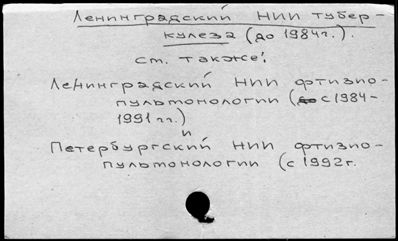 Ленинградский НИИ тубер-
кулеза (до 1984г.).
ст. также:
Ленинградский НИИ фтизио-
пульмонологии (с 1984-
1991 гг.)
и
Петербургский НИИ фтизио-
пульмонологии (с 1992г.